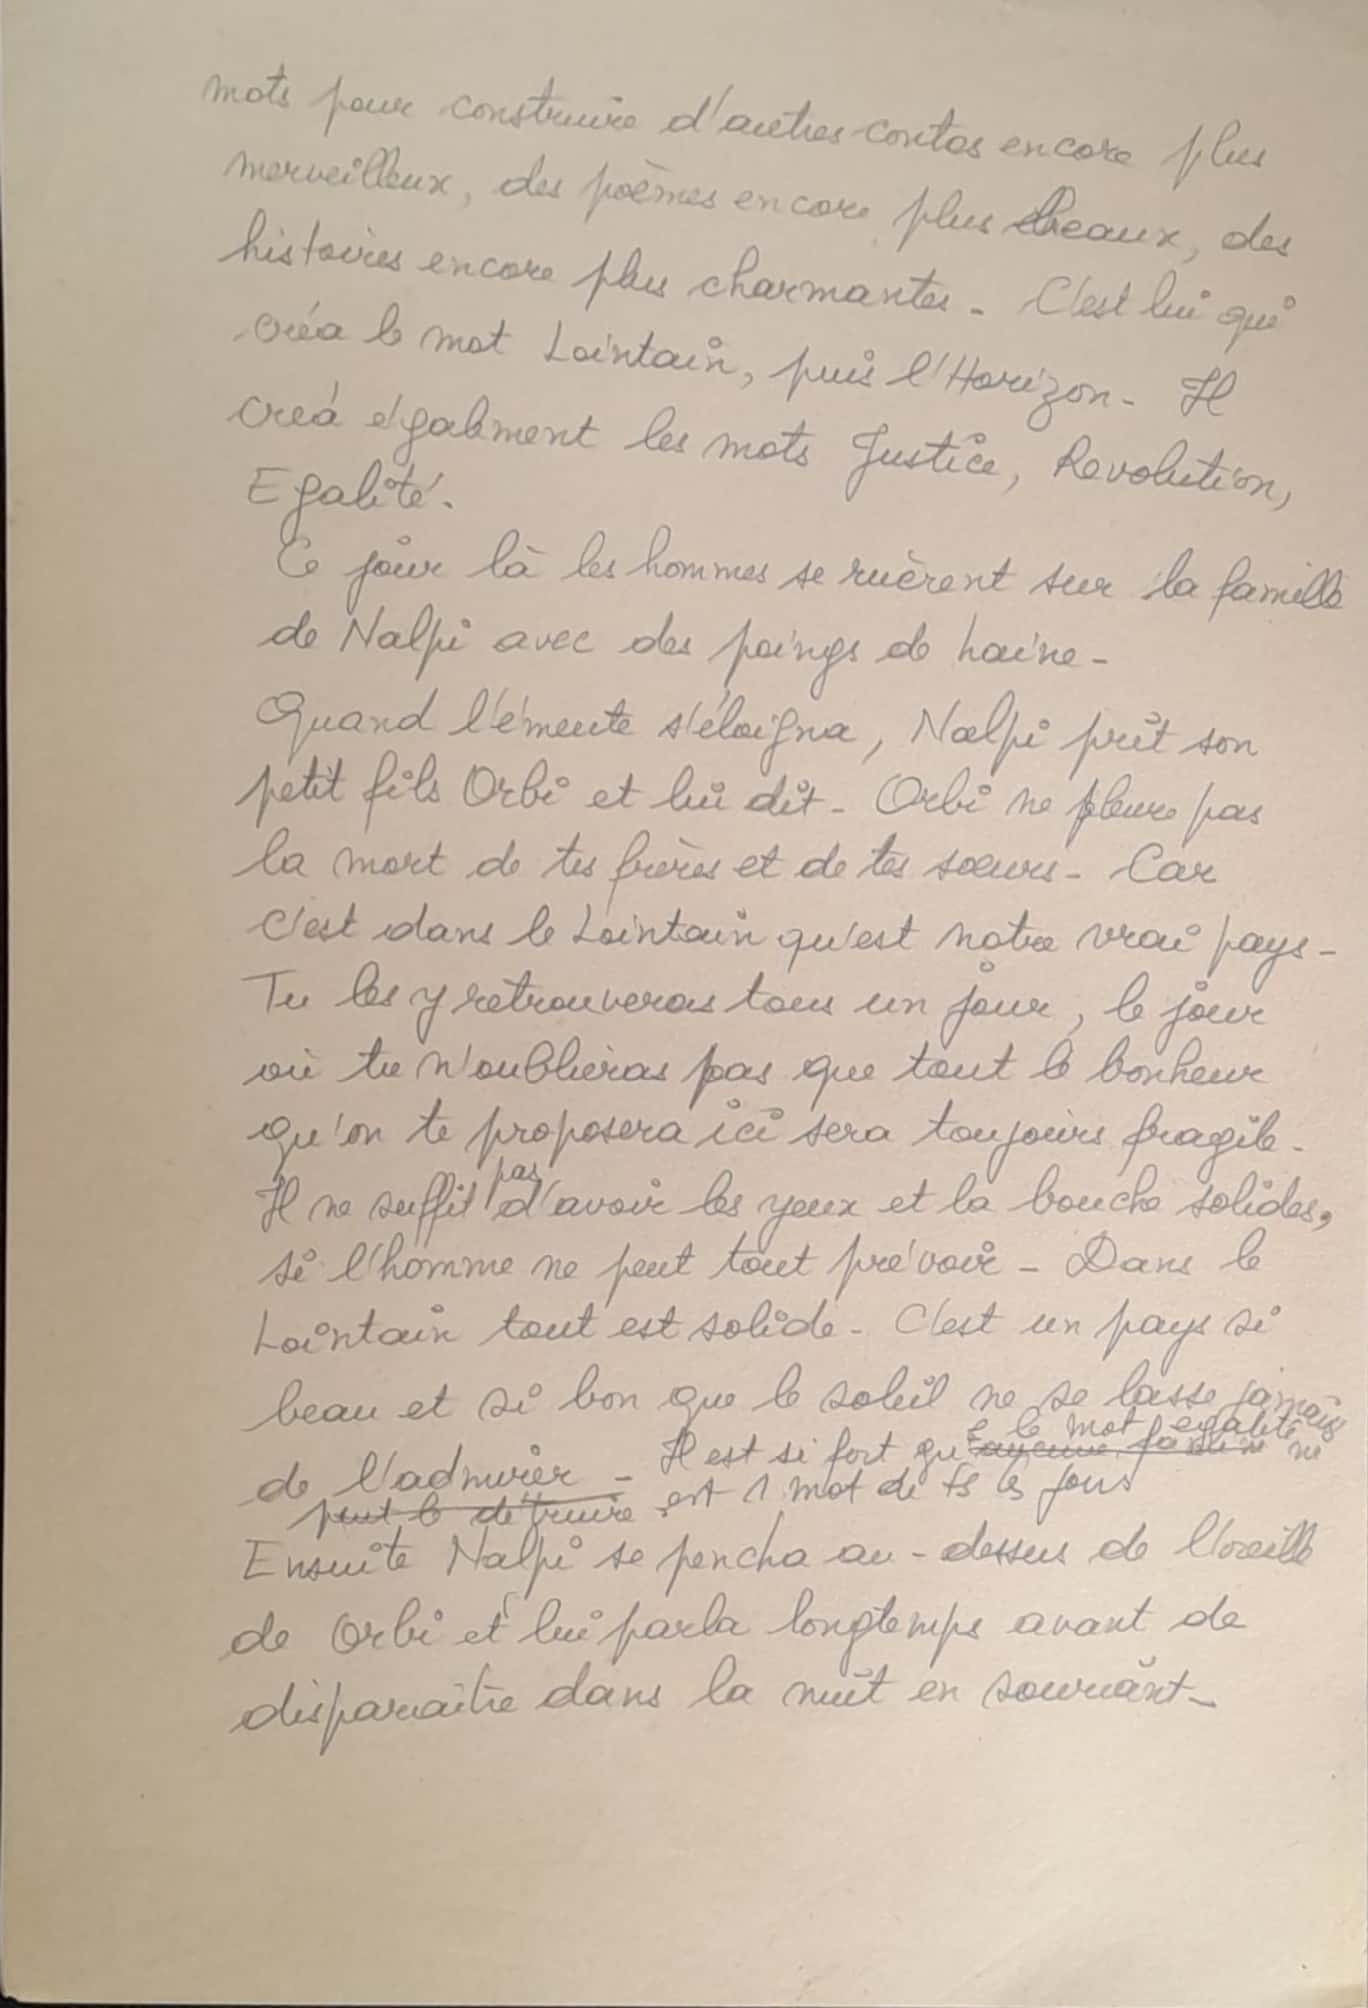 mots pour construire d'autres contes encore plus
merveilleux, des poèmes encore plus beaux, des
histoires encore plus charmantes - C'est lui qui
créa le mot Lointain, puis l'Horizon - Il
créa également les mots Justice, Revolution,
Egalité.
Ce jour là les hommes se ruèrent sur la famille
de Nalpi avec des poings de haine -
Quand l'émeute s'éloigna, Nalpi prit son
petit fils Orbi et lui dit - Orbi ne pleure pas
la mort de tes frères et de tes sœurs - Car
c'est dans le Lointain qu'est notre vrai pays -
Tu les y retrouveras tous un jour, le jour
où tu n'oublieras pas que tout le bonheur
qu'on te proposera ici sera toujours fragile -
pas
Il ne suffit d'avoir les yeux et la bouche solides,
si l'homme ne peut tout prévoir - Dans le
Lointain tout est solide - C'est un pays si
beau et si bon que le soleil ne se lasse jamais
e le mot egalité
de l'admirer - Il est si fort qu'aucune ne
peut le détruire est 1 mot de ts les jours
Ensuite Nalpi se pencha au-dessus de l'oreille
de Orbi et lui parla longtemps avant de
disparaître dans la nuit en souriant -